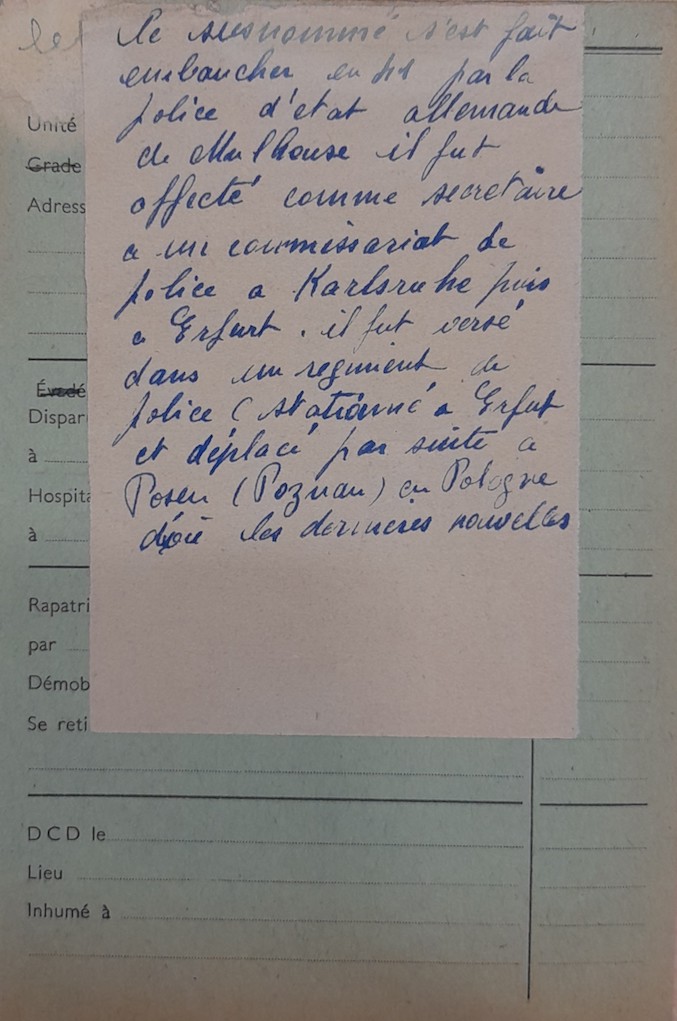 Le susnommé s'est fait
embaucher en 41 par la
police d'etat allemande
de Mulhouse il fut
affecté comme secretaire
a un commissariat de
police a Karlsruhe puis
a Erfurt. il fut versé
dans un regiment de
police (stationné a Erfut
et déplacé par suite a
Posen (Poznan) en Pologne
d'où les dernieres nouvelles
Unité
Grade
Adress
Évadé
Dispar
à
Hospita
à
Rapatri
par
Démob
Se reti
DCD le
Lieu
Inhumé à